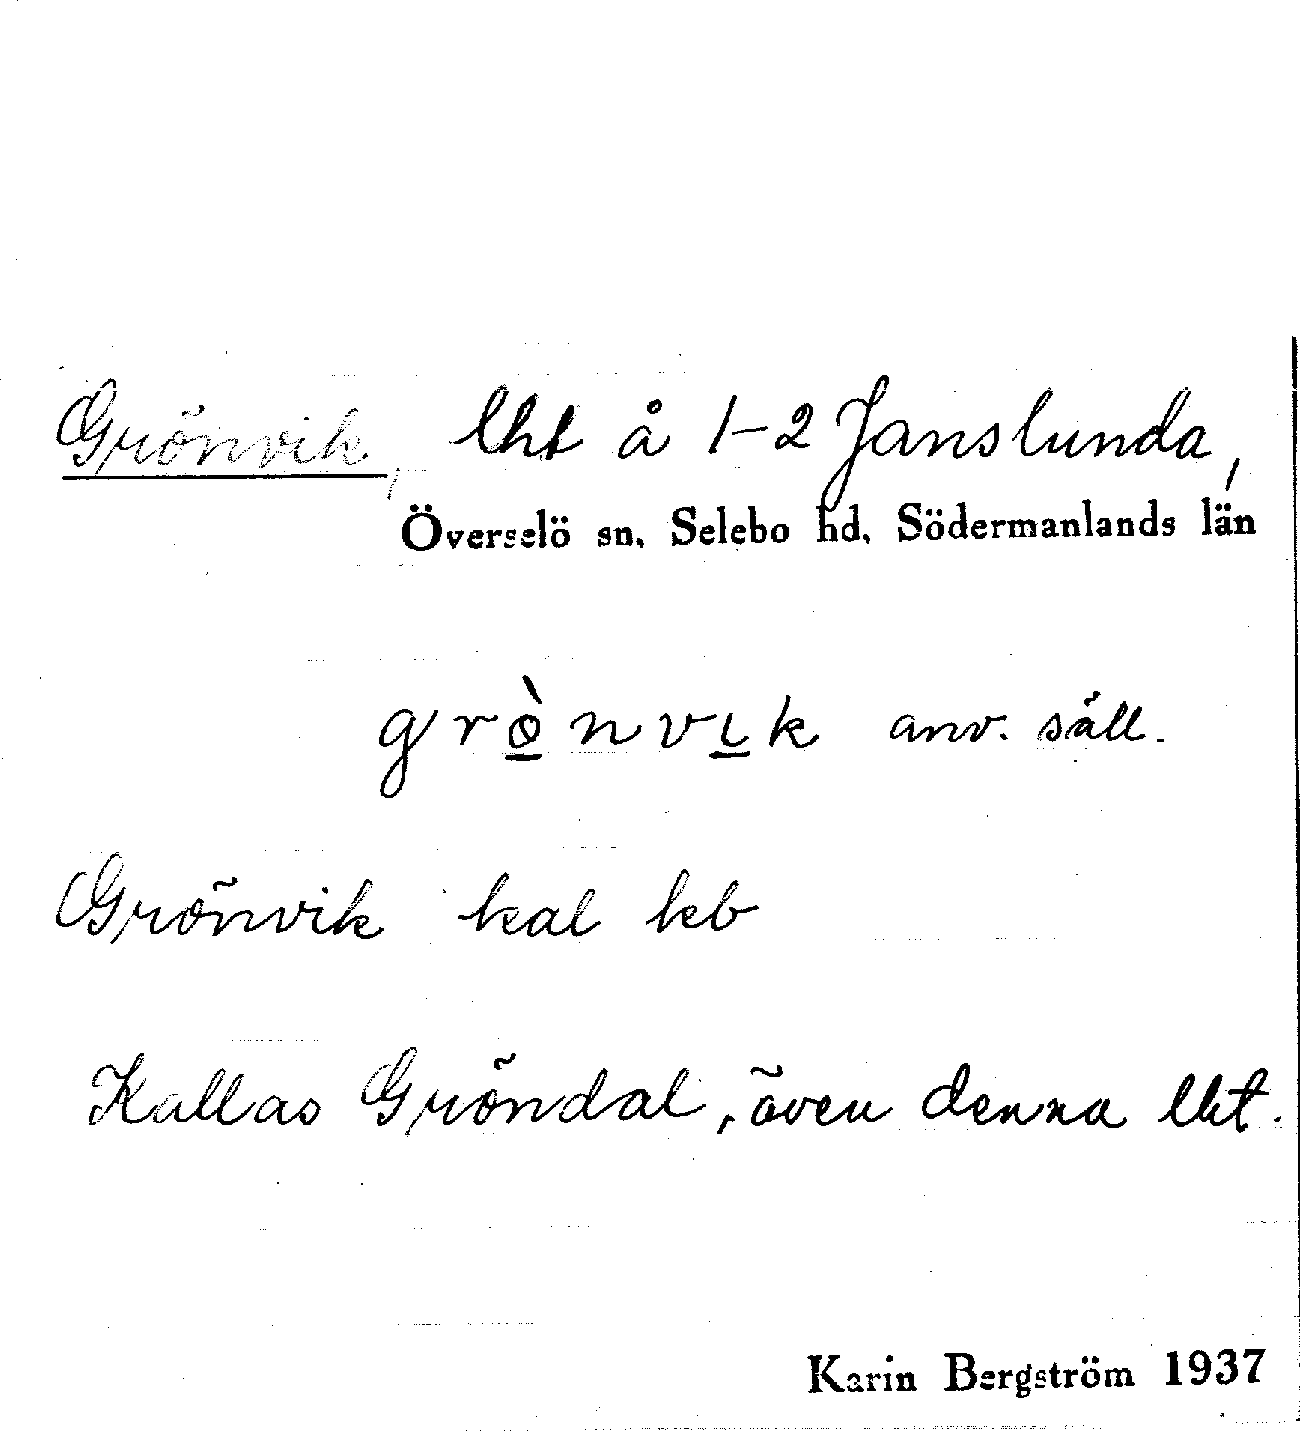 Grönvik, lht å 1-2 Janslunda,
Överselö sn, Selebo hd, Södermanlands län
grö̀nvik anv. säll.
Grönvik kal kb
Kallas Gröndal, även denna lht.
Karin Bergström 1937